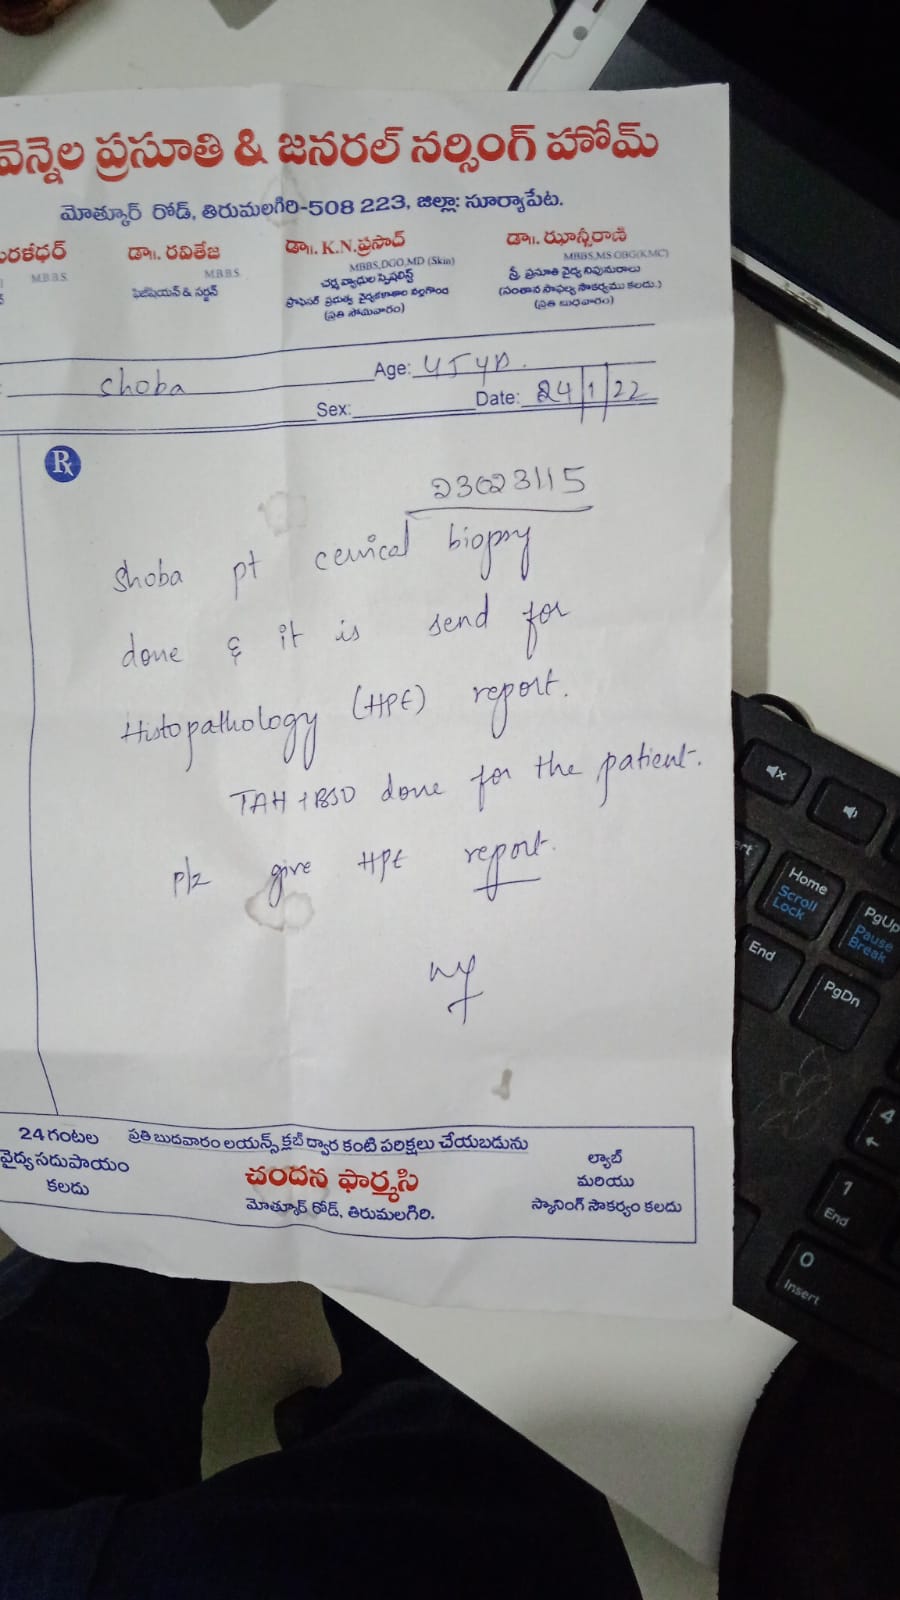 వెన్నెల ప్రసూతి & జనరల్ నర్సింగ్ హోమ్
మోత్కూర్ రోడ్, తిరుమలగిరి-508 223, జిల్లా: సూర్యాపేట.
రళీధర్ డా॥. రవితేజ డా॥. K.N.ప్రసాద్ డా॥. ఝాన్సీరాణి
M.B.B.S. M.B.B.S. MBBS,DGO,MD (Skin) MBBS,MS OBG(KMC)
ఫిజీషియన్ & సర్జన్ చర్మ వ్యాధుల స్పెషలిస్ట్ స్త్రీ ప్రసూతి వైద్య నిపుణురాలు
ప్రొఫెసర్ ప్రభుత్వ వైద్యకళాశాల నల్లగొండ (సంతాన సాఫల్య సౌకర్యము కలదు.)
(ప్రతి సోమవారం) (ప్రతి బుధవారం)
Shoba Age: 45 yrs.
Sex: Date: 24/1/22
Rx
23023115
Shoba pt cervical biopsy
done & it is send for
Histopathology (HPE) report.
TAH + BSO done for the patient.
plz give HPE report.
24 గంటల ప్రతి బుదవారం లయన్స్ క్లబ్ ద్వార కంటి పరిక్షలు చేయబడును
వైద్య సదుపాయం
కలదు
చందన ఫార్మసి
మోత్కూర్ రోడ్, తిరుమలగిరి.
ల్యాబ్
మరియు
స్కానింగ్ సౌకర్యం కలదు
Home
Scroll
Lock
PgUp
Pause
Break
End
PgDn
4
1
End
0
Insert